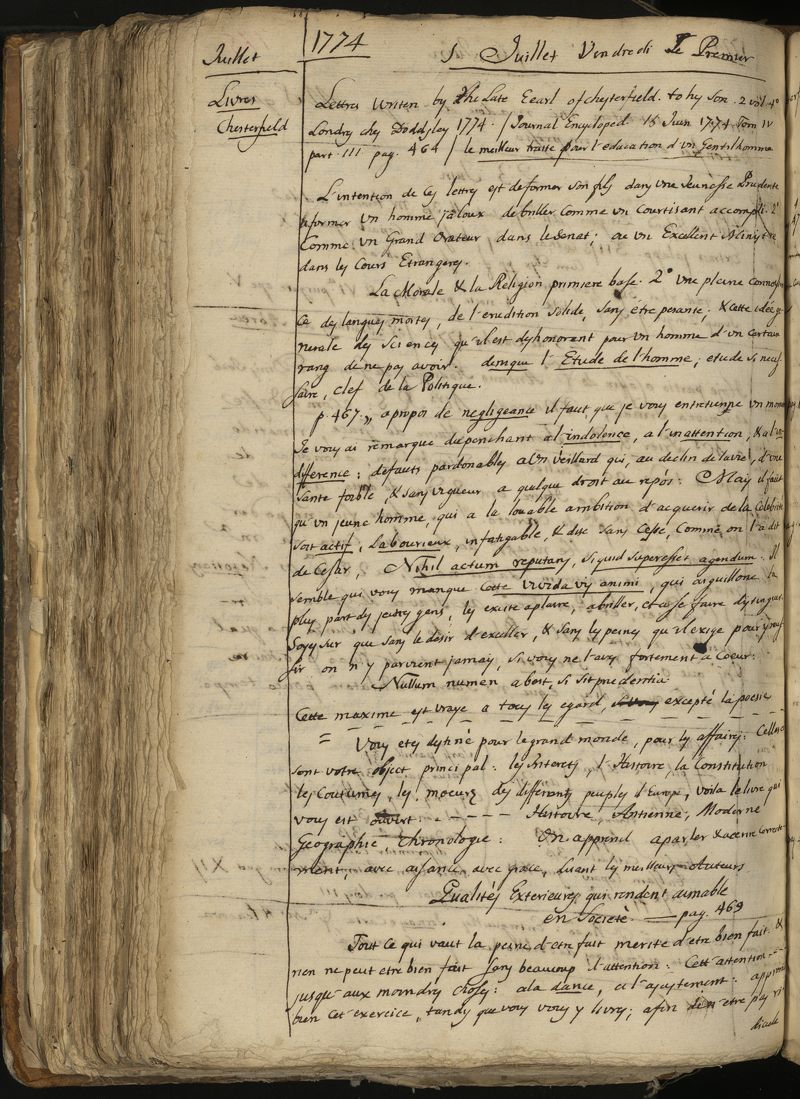 Juillet
1774
1 Juillet Vendredi Le Premier
Livres
Chesterfield
Lettres Writen by The Late Eearl of chesterfield. to hy Son. 2 vol 4°
Londry chez Doddsley 1774. / Journal Encycloped. 15 Juin 1774 Tom IV
part. III pag. 464 / le meilleur traite pour l'education d'un Gentilhomme
L'intention de Ces lettry est deformer son fils dans une Jeunesse Prudente
reformer un homme jaloux de briller Comme un Courtisant accompli. 2°
Comme un Grand Orateur dans le Senat; ou un Excellent Ministre
dans les Cours Etrangeres.
La Morale & la Religion premiere base. 2° une pleine Connoissan
Ce des langues mortes, de l'erudition solide, sans être pesante, & cette idée ge
nerale des Sciences qu'il est dishonorant pour un homme d'un Certain
rang de ne pas avoir. l'Etude de l'homme; etude si neces
saire, clef de la Politique.
p. 467. „ apropos de negligeance il faut que je vous entretienne un moment
Je vous ai remarque du penchant a l'indolence, a l'inattention, & a l'in
difference: defauts pardonables a Un veillard qui, au declin de la vie, d'une
sante foible, & sans vigueur a quelque droit au repos: Mais il faut
qu'un jeune homme, qui a la louable ambition d'acquerir de la Celebrité
soit actif, Labourieux, infatigable, & dise sans Cesse, Comme on l'a dit
de Cesar, Nihil actum reputans, si quid superesset agendum. Il
semble qui vous manque Cette vivida vis animi, qui aiguillone la
plus part des jeunes gens, les excite aplaire, abriller, et a se faire distinguer.
Soyes sur que sans le desir d'exceller, & sans les peines qu'il exige pour y reus
sir on n'y parvient jamais, si vous ne l'avez fortement a Coeur.
Nullum numen abest, si sit prudentia
Cette maxime est vraye a tous les egard, excepté la poesie
= Vous etes destiné pour le grand monde, pour les affaires: Celles ci
sont votre object principal. les Interets l'Histoire, la Constitution
les Coutumes, les moeurs des differents peuples d'Europe, voila le livre qui
vous est ouvert. - - - - - Histoire, Antienne, Moderne
Geographie, Chronologie: On apprend a parler & a ecrire Correcte
ment, avec aisance, avec grace, Lisant les meilleurs Auteurs
Qualités Exterieures qui rendent aimable
en Societé. —— pag. 469
Tout Ce qui vaut la peine d'etre fait merite d'etre bien fait. &
rien ne peut etre bien fait sans beaucoup d'attention: Cett attention - -
jusqu'aux moindres choses: a la dance, a l'ajustement: apprenes
bien Cet exercice, tandis que vous vous y livres; afin de n'etre pas ri
dicule